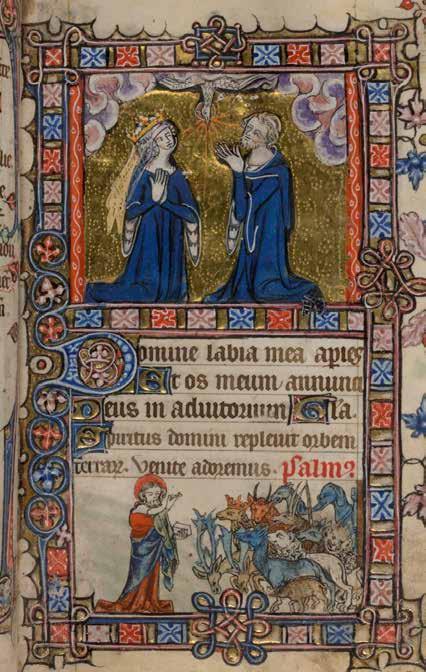 Domine labia mea apies
Et os meum annunci
Deus in adiutorium Gla.
Spiritus domini repleuit orbem
terrar. Venite adoremus. Psalm